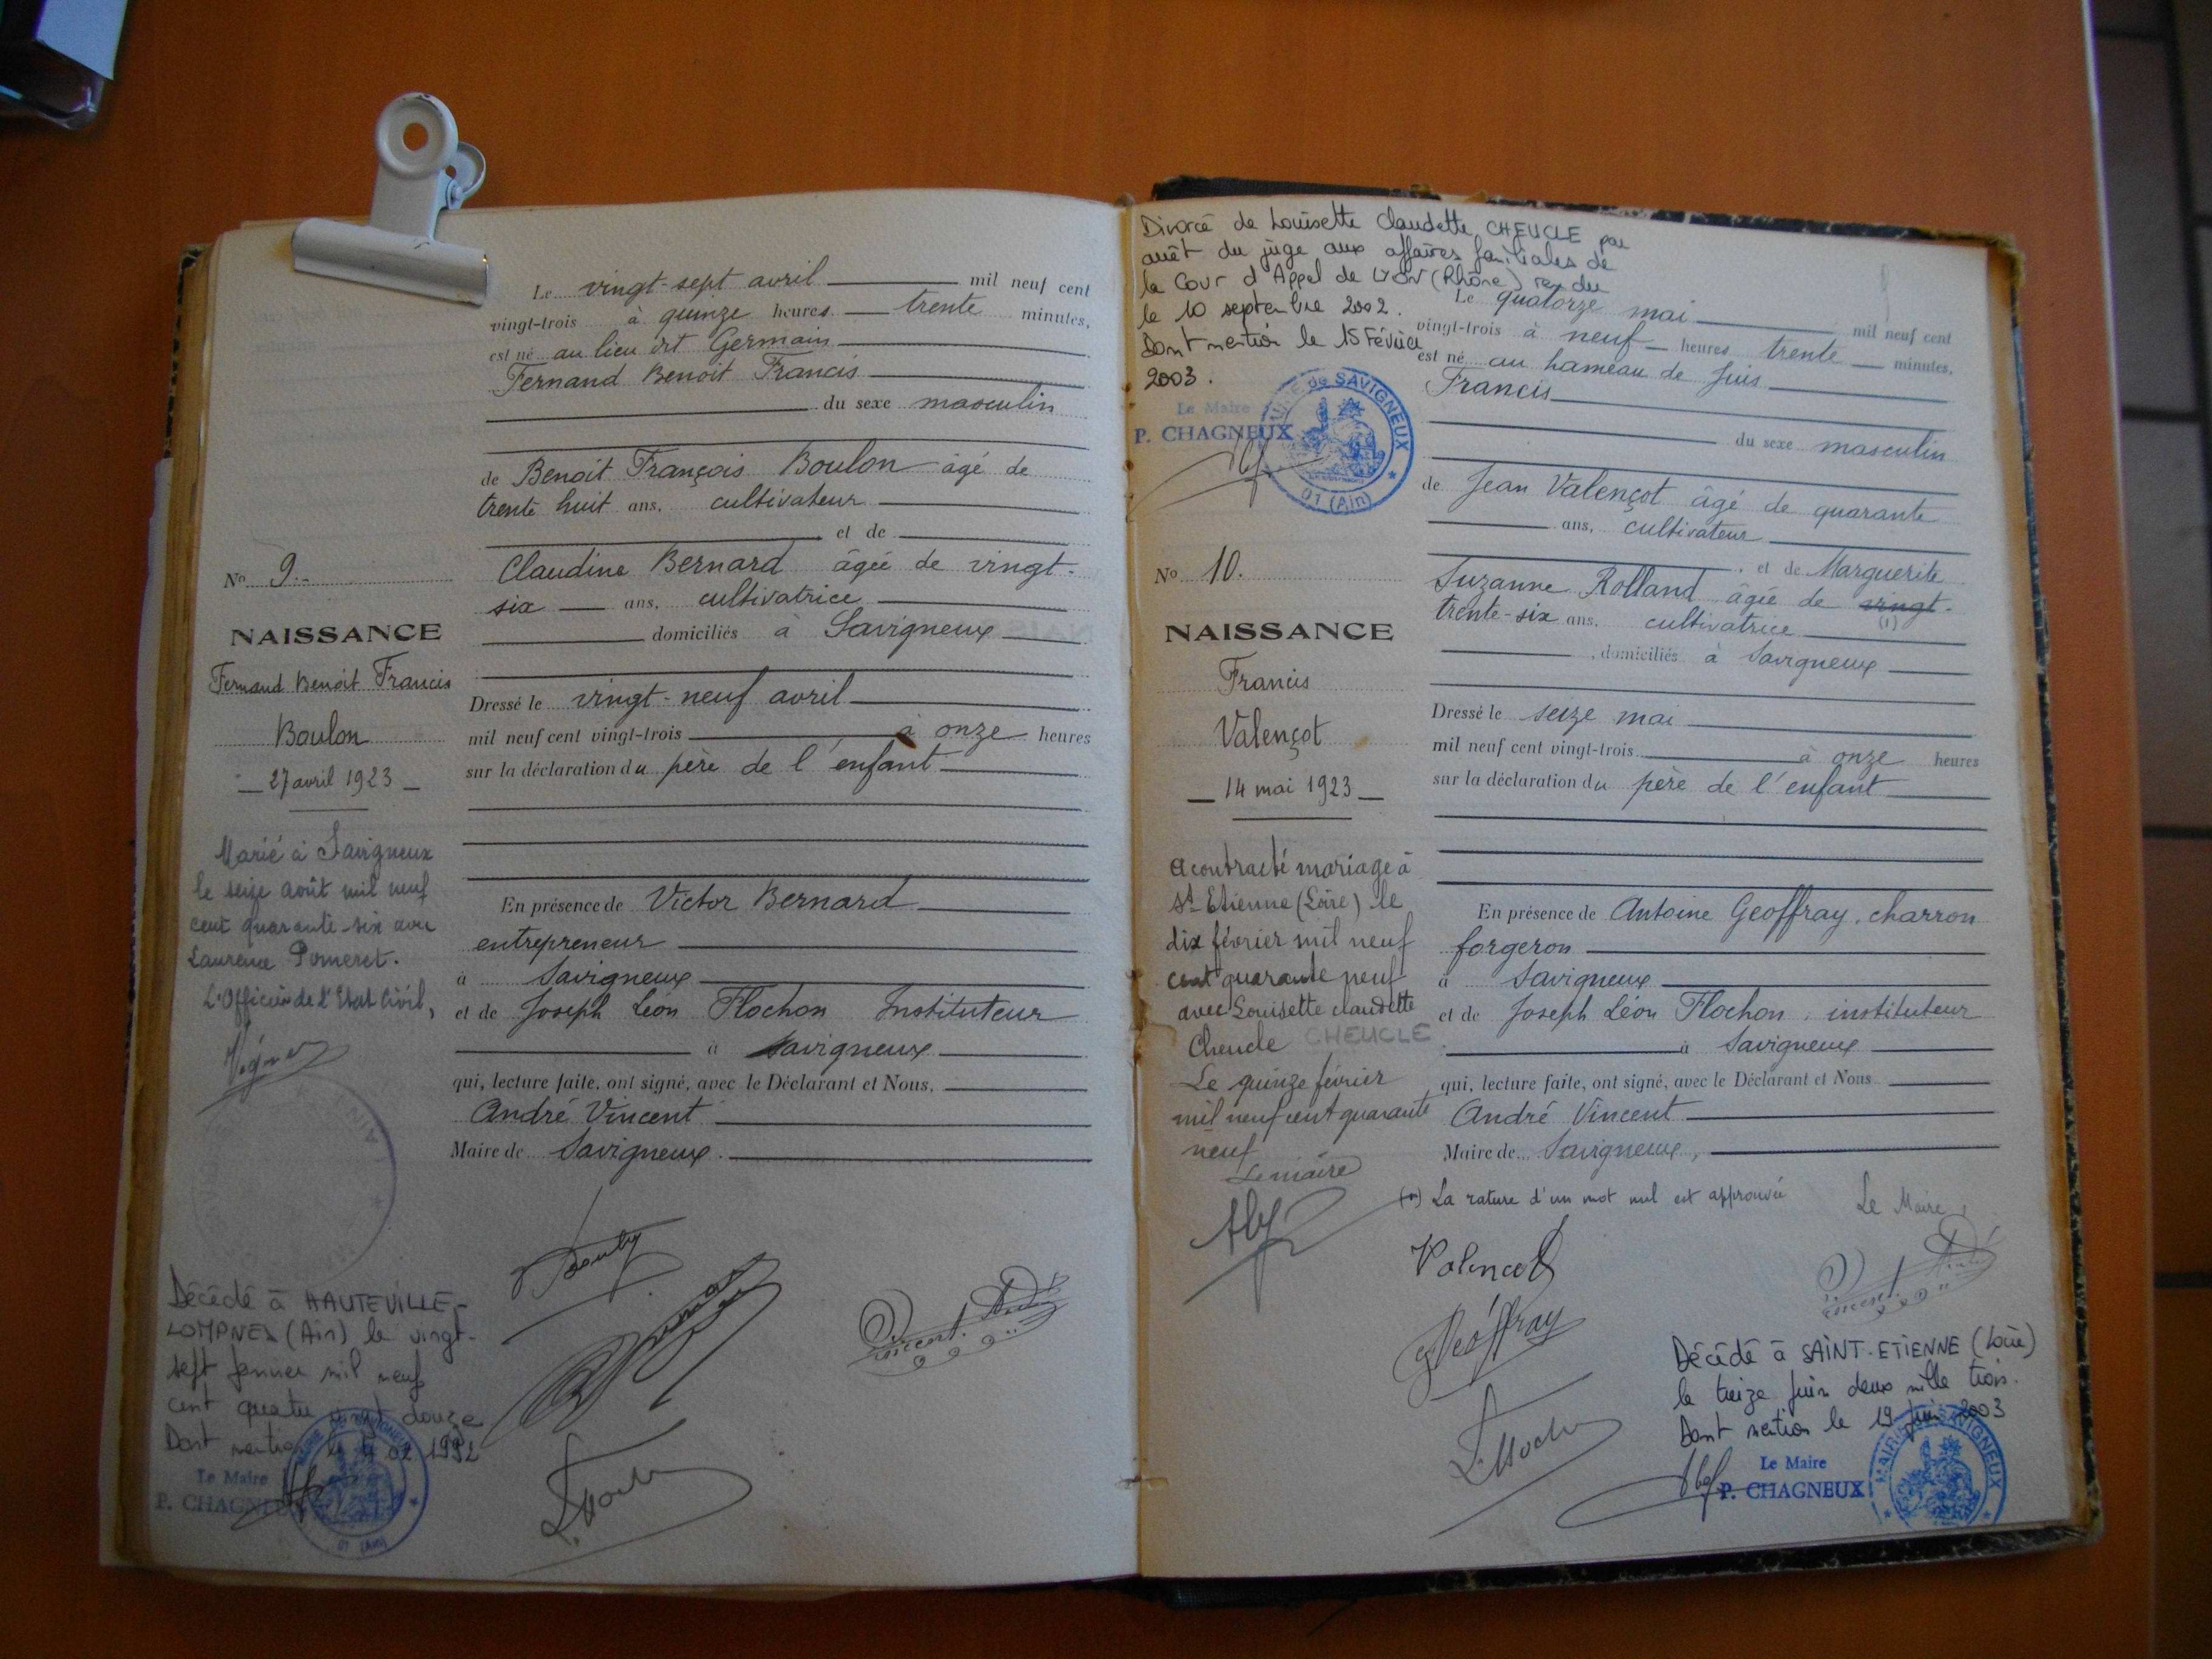 Le vingt-sept avril mil neuf cent
vingt-trois à quinze heures trente minutes,
est né au lieu dit Germain
Fernand Benoit Francis
du sexe masculin
de Benoit François Boulon âgé de
trente huit ans, cultivateur
et de
Claudine Bernard âgée de vingt-
six ans, cultivatrice
domiciliés à Savigneux
Dressé le vingt-neuf avril
mil neuf cent vingt-trois à onze heures
sur la déclaration du père de l'enfant
En présence de Victor Bernard
entrepreneur
à Savigneux
et de Joseph Léon Flochon Instituteur
à Savigneux
qui, lecture faite, ont signé, avec le Déclarant et Nous,
André Vincent
Maire de Savigneux.
Vincent André
No 9.-
NAISSANCE
Fernand Benoit Francis
Boulon
27 avril 1923
Marié à Savigneux
le seize août mil neuf
cent quarante-six avec
Laurence Pomeret.
L'Officier de l'Etat Civil,
Décédé à HAUTEVILLE-
LOMPNES (Ain) le vingt-
sept janvier mil neuf
cent quatre vingt douze
Dont mention le 02 1992
Le Maire
P. CHAGNEUX
Divorcé de Louisette Claudette CHEUCLE par
arrêt du juge aux affaires familiales de
la Cour d'Appel de LYON (Rhône) rendu
le 10 septembre 2002.
Dont mention le 15 Février
2003.
Le Maire
P. CHAGNEUX
MAIRIE de SAVIGNEUX
01 (Ain)
Le quatorze mai mil neuf cent
vingt-trois à neuf heures trente minutes,
est né au hameau de Juis
Francis
du sexe masculin
de Jean Valençot âgé de quarante
ans, cultivateur
, et de Marguerite
Suzanne Rolland âgée de vingt-
trente-six ans, cultivatrice (1)
, domiciliés à Savigneux
Dressé le seize mai
mil neuf cent vingt-trois à onze heures
sur la déclaration du père de l'enfant
En présence de Antoine Geoffray, charron
forgeron
à Savigneux
et de Joseph Léon Flochon, instituteur
à Savigneux
qui, lecture faite, ont signé, avec le Déclarant et Nous
André Vincent
Maire de Savigneux,
(1) La rature d'un mot nul est approuvée
Le Maire,
Valençot
Geoffray
Vincent André
No 10.
NAISSANCE
Francis
Valençot
14 mai 1923
a contracté mariage à
St-Etienne (Loire) le
dix février mil neuf
cent quarante neuf
avec Louisette Claudette
Cheucle CHEUCLE
Le quinze février
mil neuf cent quarante
neuf
Le maire
Décédé à SAINT-ETIENNE (Loire)
le treize juin deux mille trois.
Dont mention le 19 juin 2003
Le Maire
P. CHAGNEUX
MAIRIE de SAVIGNEUX